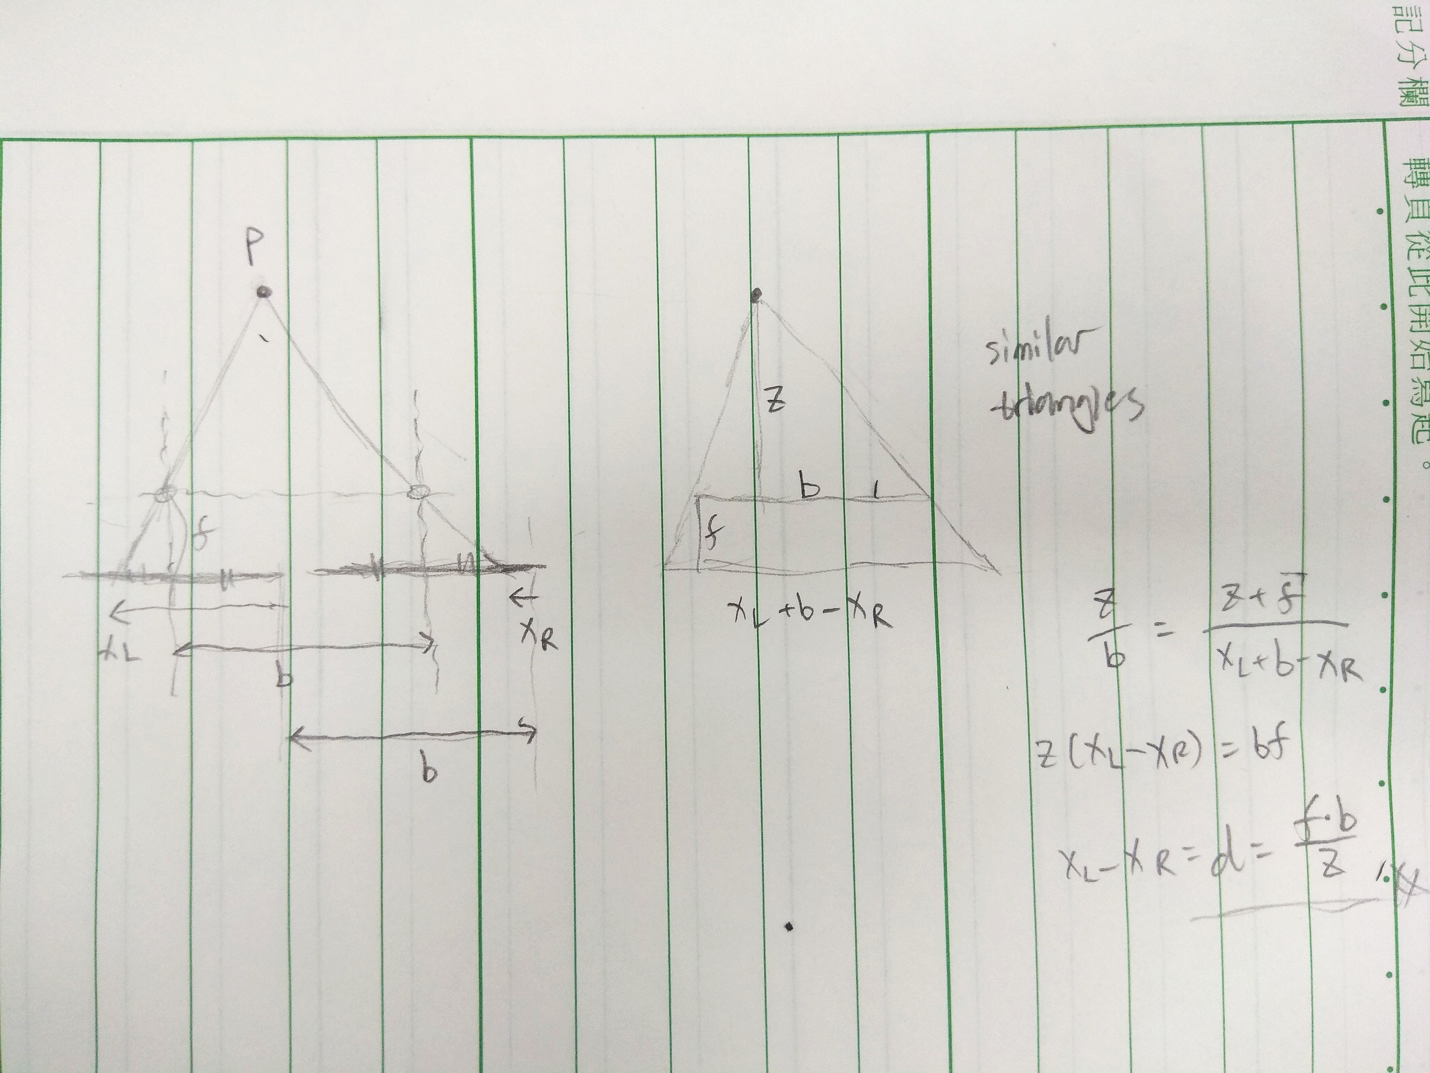 記分欄
轉頁從此開始寫起。
P
f
x_L
b
x_R
b
z
b
f
x_L + b - x_R
similar
triangles
z/b = (z + f)/(x_L + b - x_R)
z(x_L - x_R) = bf
x_L - x_R = d = f·b/z